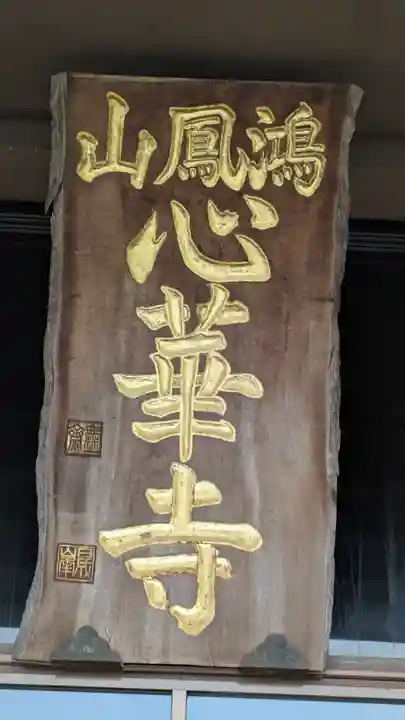 鴻鳳山
心華寺